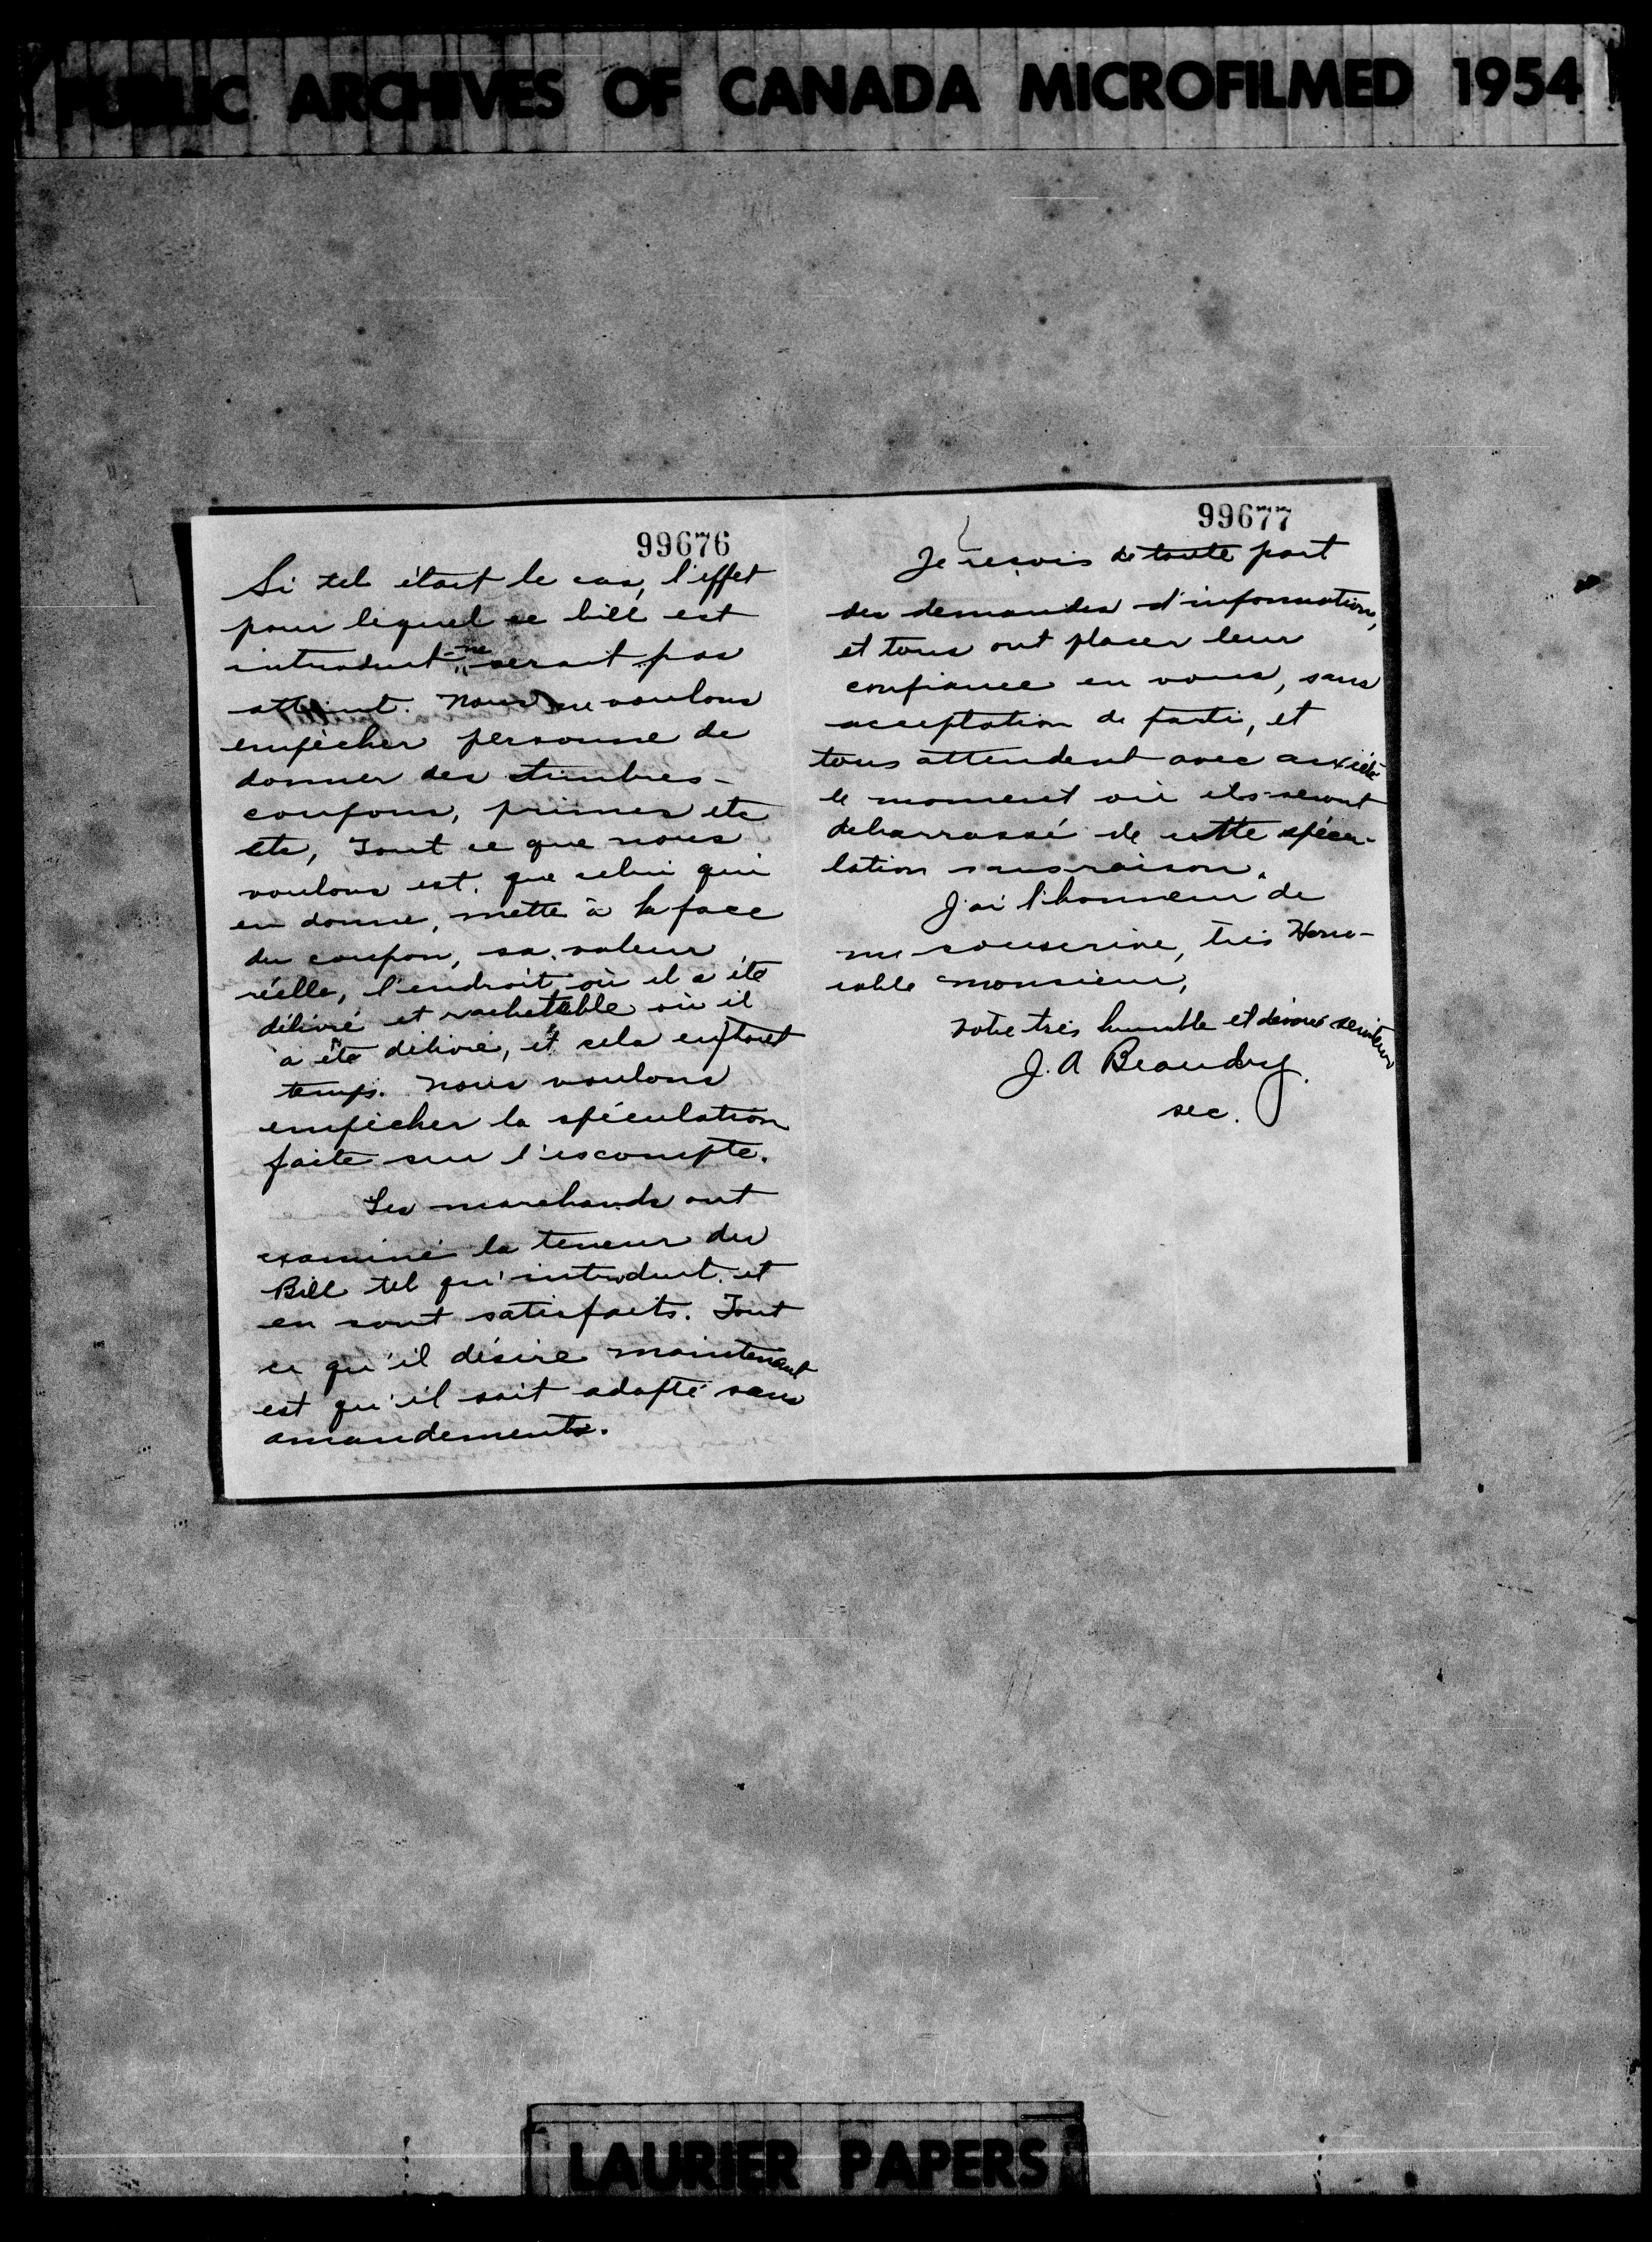 PUBLIC ARCHIVES OF CANADA MICROFILMED 1954
99676
Si tel était le cas, l'effet
pour lequel ce bill est
introduit ne serait pas
atteint. Nous ne voulons
empêcher personne de
donner des timbres-
coupons, primes etc
etc, Tout ce que nous
voulons est, que celui qui
en donne, mette à la face
du coupon, sa valeur
réelle, l'endroit où il a été
délivré et rachetable où il
a été délivré, et cela en tout
temps. Nous voulons
empêcher la spéculation
faite sur l'escompte.
Les marchands ont
examiné la teneur du
Bill tel qu'introduit et
en sont satisfaits. Tout
ce qu'il désire maintenant
est qu'il soit adopté sans
amandements.
99677
Je reçois de toute part
des demandes d'informations,
et tous ont placer leur
confiance en vous, sans
acceptation de parti, et
tous attendent avec anxiété
le moment où ils seront
debarrassé de cette spécu-
lation sans raison.
J'ai l'honneur de
me souscrire, très Hono-
rable monsieur,
votre très humble et dévoué serviteur
J. A Beaudry.
sec.
LAURIER PAPERS